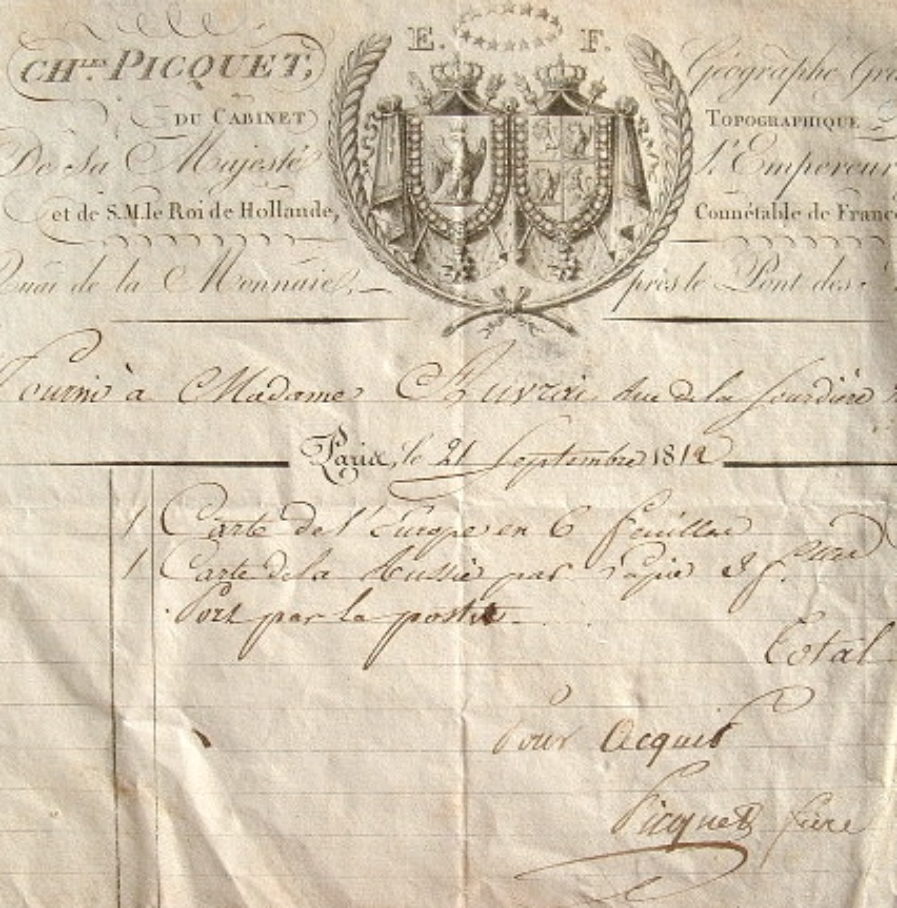 E. F.
CH.LES PICQUET, Géographe Gra
DU CABINET TOPOGRAPHIQUE
De Sa Majesté l'Empereur
et de S.M. le Roi de Hollande, Connétable de France
Quai de la Monnaie, près le Pont des
Fourni à Madame rue de la Sourdière
Paris, le 21 Septembre 1812
1 Carte de l'Europe en 6 feuilles
1 Carte de la Russie par 3 f.
Port par la poste
Total
Pour Acquit
Picquet